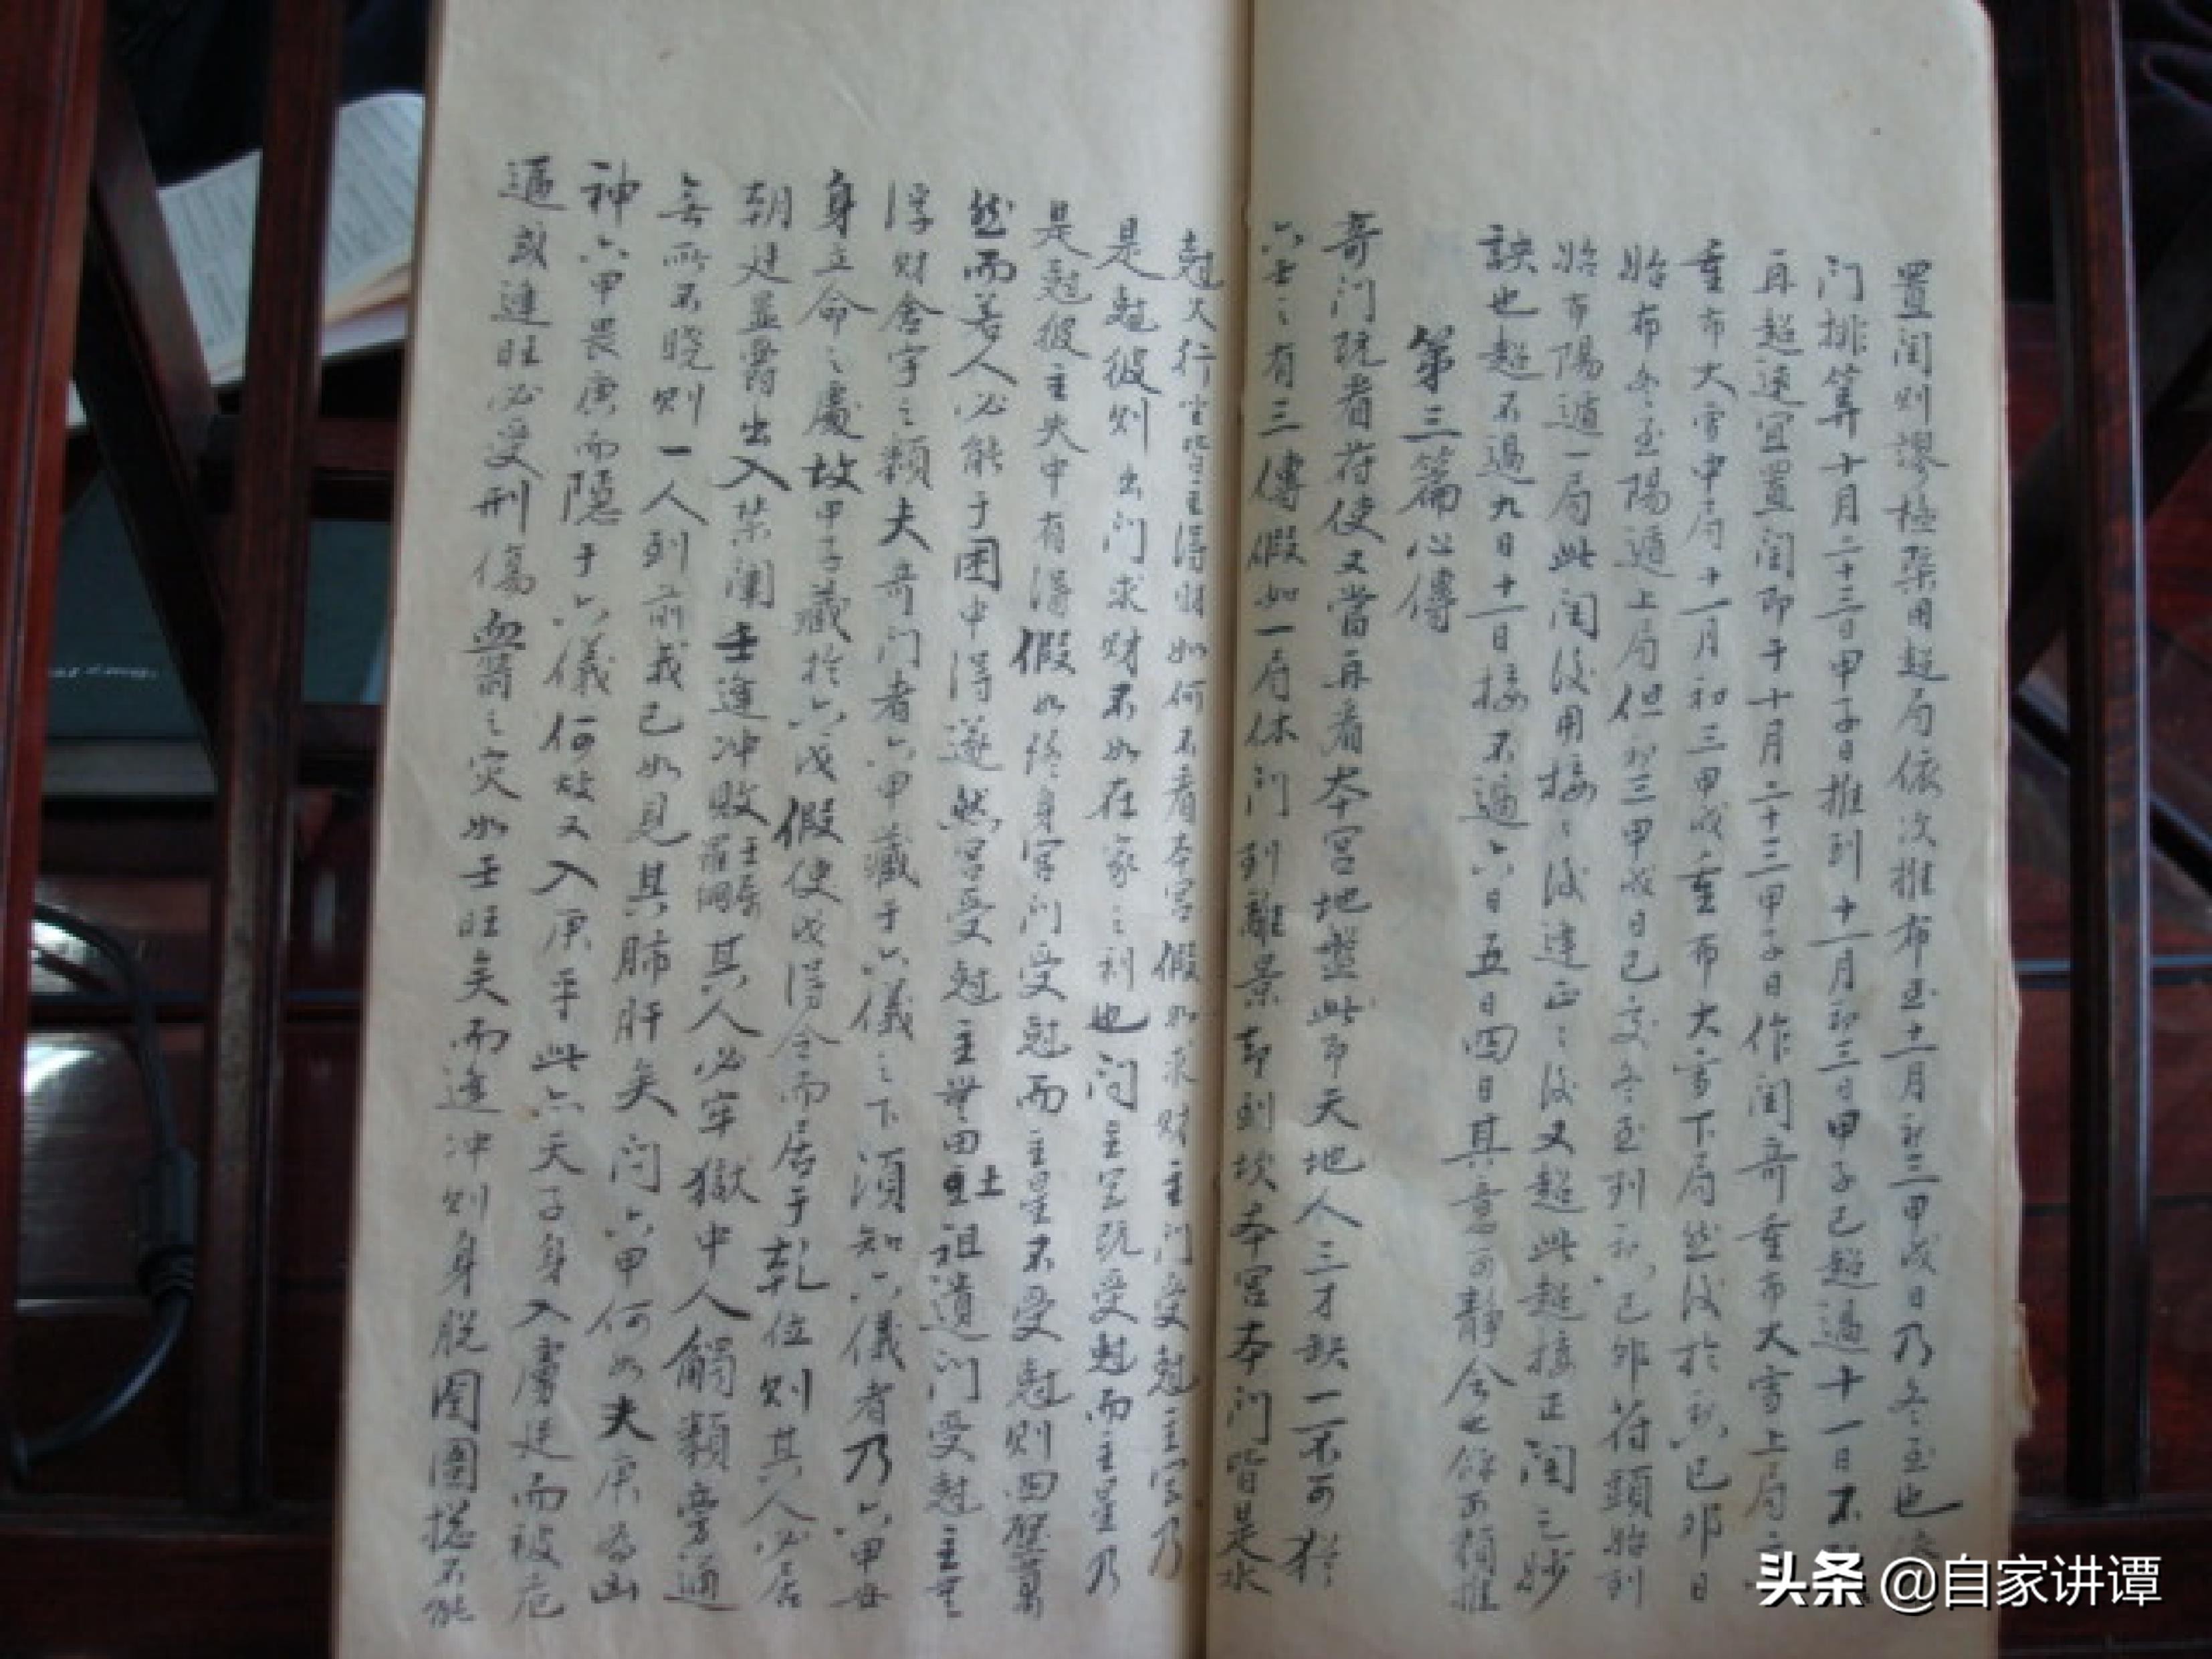 置闰则謬極矣用超局依次推布至十一月初三甲戌日乃冬至也
门排算十月二十三日甲子日推到十一月初三日甲子已超過十一日不
再超速宜置闰即于十月二十三甲子日作闰奇重布大雪上局
重布大雪中局十一月初三甲戌重布大雪下局然後於初八己卯日
始布冬至陽遁上局但初三甲戌日已交冬至到初八己卯符頭始到
始布陽遁一局此闰後用接之後達正之後又超此超接正闰之妙
訣也超不過九日十一日接不過六日五日四日其意可静会也餘可類推
第三篇心傳
奇门既看符使又當再看本宫地盤此即天地人三才缺一不可於
六壬之有三傳假如一局休门到離景却到坎本宫本门皆是水
尅火行生皆主得财如何不看本宫假如求财主门受尅主宫乃
是尅彼则出门求财不如在家之利也问主宫既受尅而主星乃
是尅彼主失中有得假如終身宫门受尅而主星不受尅则四壁萬
然而善人必能于困中得遂然宫受尅主無田土祖遺门受尅主無
浮财舍宇之類夫奇门者六甲藏于六儀之下須知六儀者乃六甲安
身立命之處故甲子藏於六戊假使戊得令而居于乾位则其人必居
朝廷並爵出入禁闌壬逢冲敗壬辰羅網其人必牢獄中人觸類旁通
無所不晓则一人到前義已如見其肺肝矣问六甲何如夫庚為凶
神六甲畏庚而隱于六儀何故又入庚乎此六天子身入虜廷而被危
逼故逢旺必受刑傷血箭之灾如壬旺矣而逢冲则身脱囹圄総不能
头条 @自家讲谭